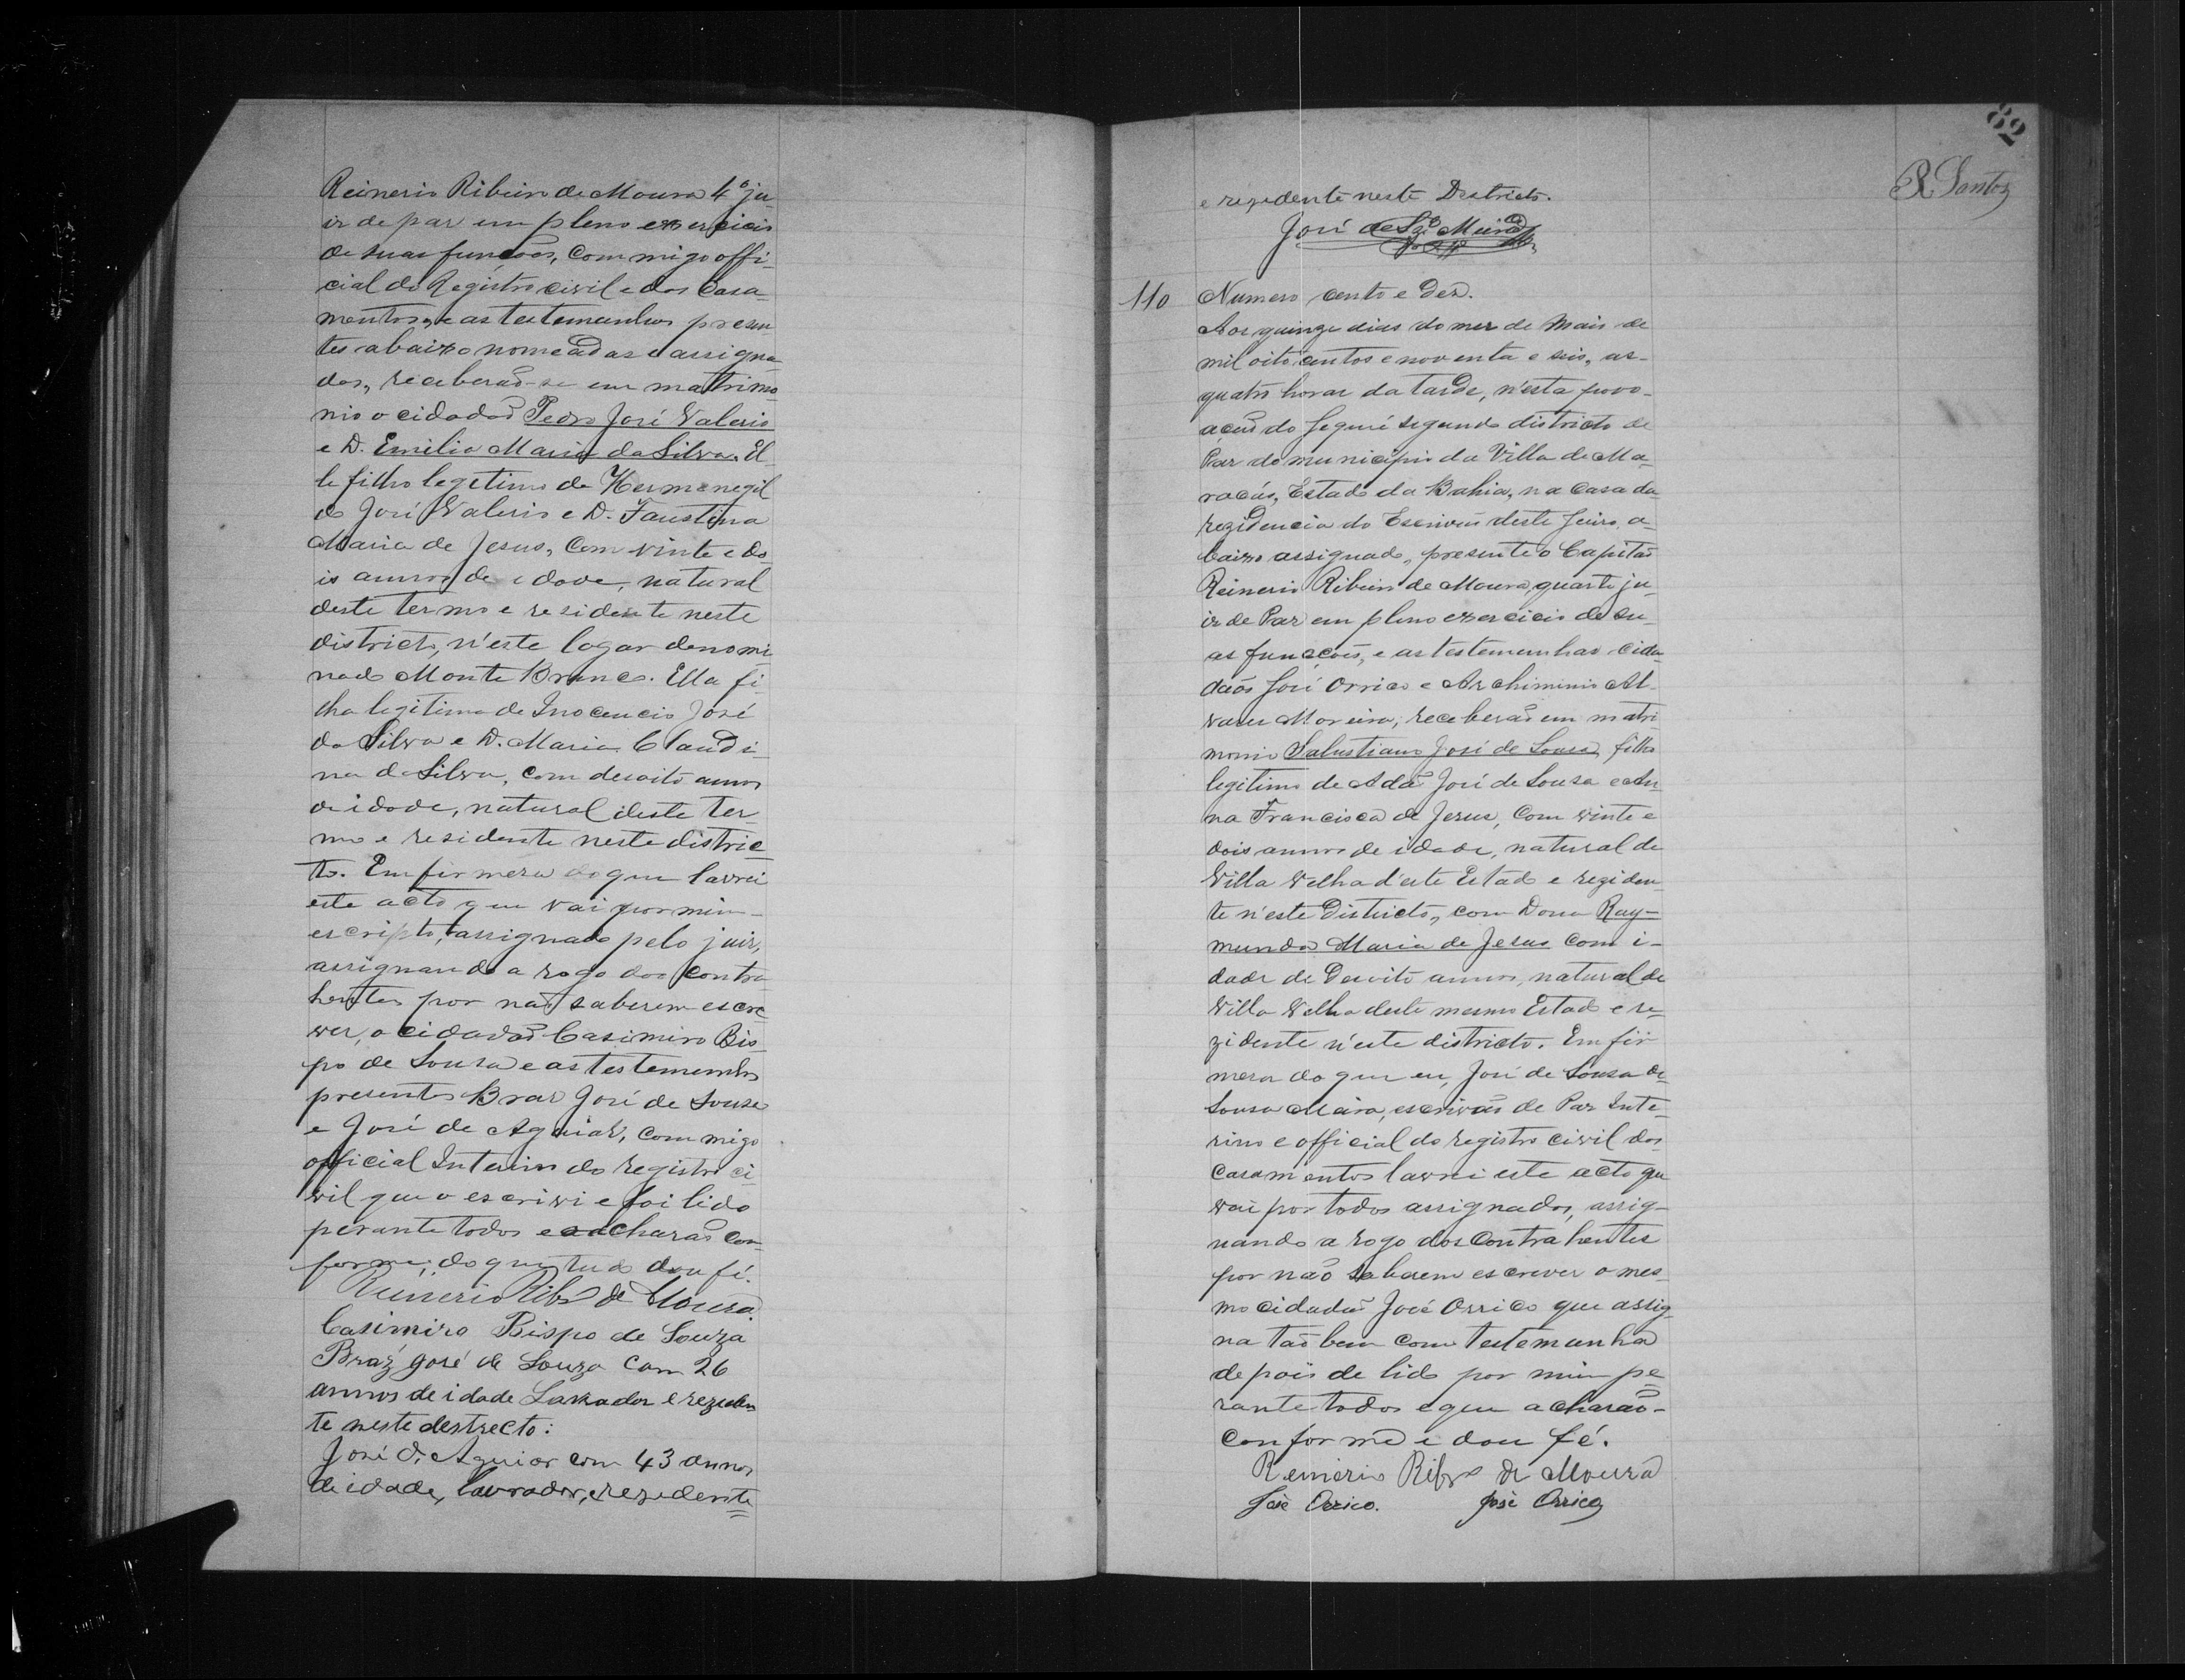 Reinerio Ribeiro de Moura 4º ju
iz de paz em pleno exercicio
de suas funçoes, commigo offi
cial do Registro civil e dos Casa
mentos, e as testemunhas presen
tes abaixo nomeadas e assigna
das, receberaõ-se em matrimo
nio o cidadaõ Pedro José Valerio
e D. Emilia Maria da Silva. El
le filho legitimo de Hermenegil
do José Valerio e D. Faustina
Maria de Jesus, com vinte e do
is annos de idade, natural
deste termo e residente neste
districto, n'este logar denomi
nado Monte Branco. Ella fi
lha legitima de Inocencio José
da Silva e D. Maria Claudi
na da Silva, com desoito annos
de idade, natural deste ter
mo e residente neste distric
to. Em firmesa do que lavrei
este acto que vai por mim
escripto, assignado pelo juiz,
assignando a rogo dos contra
hentes por naõ saberem escre
ver, o cidadaõ Casimiro Bis
po de Sousa e as testemunhas
presentes Braz José de Sousa
e José de Aguiar, commigo
official Interino do registro ci
vil que o escrivi e foi lido
perante todos e acharaõ con
forme; do que tudo dou fé.
Reinerio Ribrº de Moura.
Casimiro Bispo de Souza
Braz José de Souza com 26
annos de idade Lavrador e reziden
te neste destrecto:
José de Aguiar com 43 annos
de idade, lavrador, e rezedente
82
R Santos
e rezedente neste Destricto.
José de Sza
110 Numero cento e Dez.
Aos quinze dias do mez de Maio de
mil oito centos e noventa e seis, as
quatro horas da tarde, n'esta povo-
açaõ do Jequié segundo districto de
Paz do municipio da Villa de Ma-
racás, Estado da Bahia, na casa da
rezidencia do Escrivaõ deste Juizo, a-
baixo assignado, presente o Capitaõ
Reinerio Ribeiro de Moura, quarto ju-
iz de Paz em pleno exercicio de su-
as funcçoẽs, e as testemunhas cida-
daõs José Orrico e Archiminio Al-
vares Moreira, receberaõ em matri
monio Salustiano José de Sousa, filho
legitimo de Adaõ José de Sousa e An
na Francisca de Jesus, com vinte e
dois annos de idade, natural de
Villa Velha d'este Estado e reziden
te n'este Districto, com Dona Ray-
munda Maria de Jesus com i-
dade de Desoito annos, natural de
Villa Velha deste mesmo Estado e re-
zidente n'este districto. Em fir
mesa do que eu, José de Sousa de
Sousa Meira, escrivaõ de Paz Inte-
rino e official do registro civil dos
casamentos lavrei este acto que
vai por todos assignados, assig-
nando a rogo dos Contrahentes
por não saberem escrever o mes-
mo cidadaõ José Orrico que assig-
na taõ bem como testemunha
depois de lido por mim pe-
rante todos e que acharaõ-
conforme e dou fé.
Renerio Ribrº de Moura
José Orrico. José Orrico